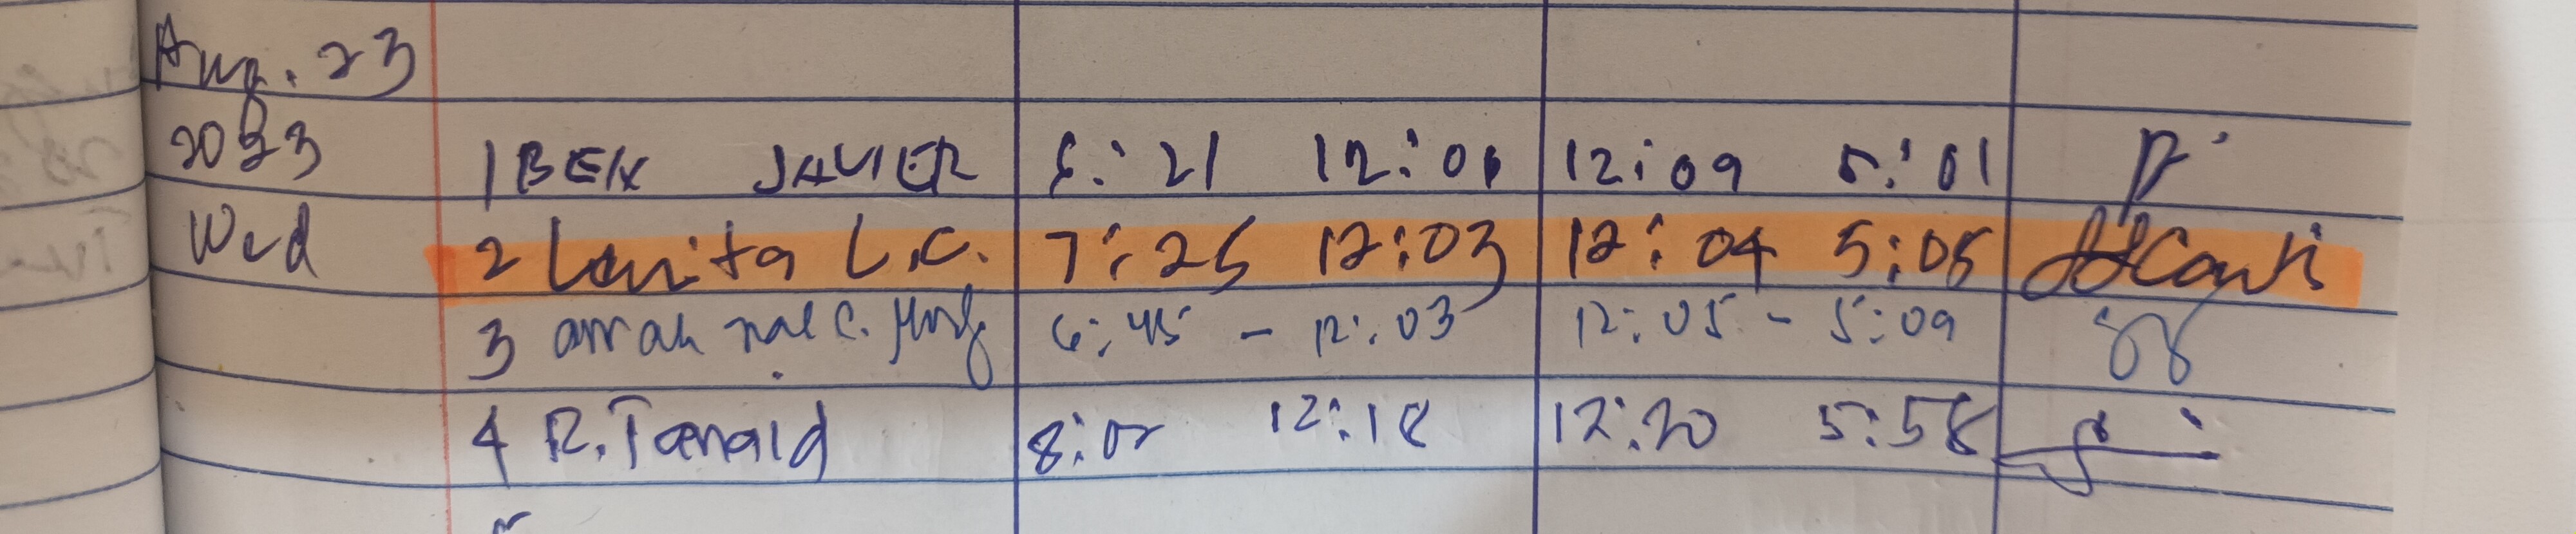 Aug. 23
2023 1 BEN JAVIER 12:09 5:01
Wed 2 Lanita L.C. 7:25 12:03 12:04 5:05
3 arrah mae C. 6:45 - 12:03 12:05 - 5:09
4 R. Tanaid 12:18 12:20 5:58